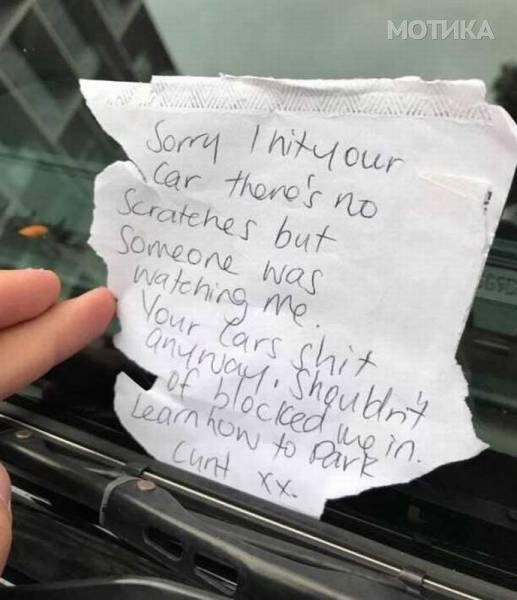 МОТИКА
Sorry I hit your
car there's no
Scratches but
Someone was
watching me.
Your cars shit
anyway. Shouldn't
of blocked me in.
Learn how to park
cunt xx.